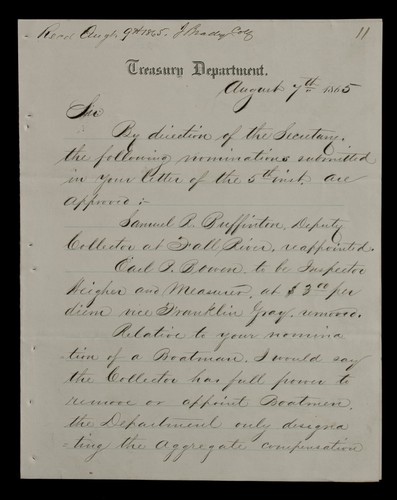 Recd Augt 9th 1865. J Brady Coll
11
Treasury Department.
August 7th 1865
Sir
By direction of the Secretary,
the following nominations submitted
in your letter of the 5th inst. are
approved:-
Samuel L. Buffinton, Deputy
Collector at Fall River, reappointed.
Earl P. Bowen, to be Inspector
Weigher and Measurer, at $3.00 per
diem vice Franklin Gray, removed.
Relative to your nomina
-tion of a Boatman, I would say
the Collector has full power to
remove or appoint Boatmen,
the Department only designa
-ting the aggregate compensation